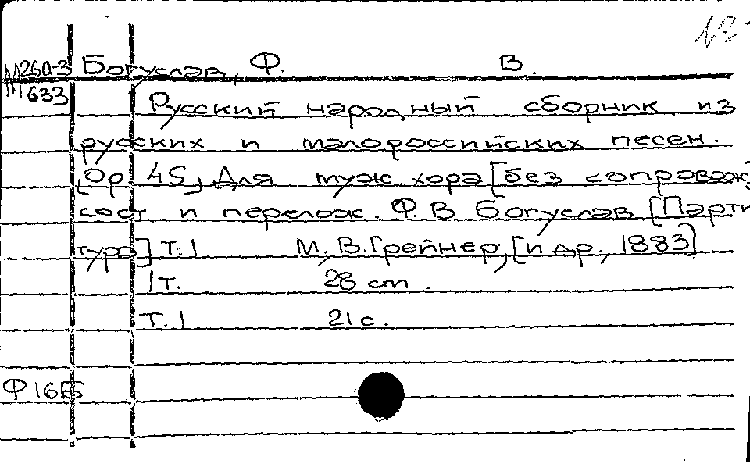 М260-3 Богуслав, Ф. В.
633 Русский народный сборник из
русских и малороссийских песен.
[Ор. 45] Для муж хора [без сопровож,
сост и перелож. Ф. В. Богуслав [Парти
тура] Т. 1 М., В. Грейнер, [и др., 1883]
1 т. 28 cm.
Т. 1 21 с.
Ф 16